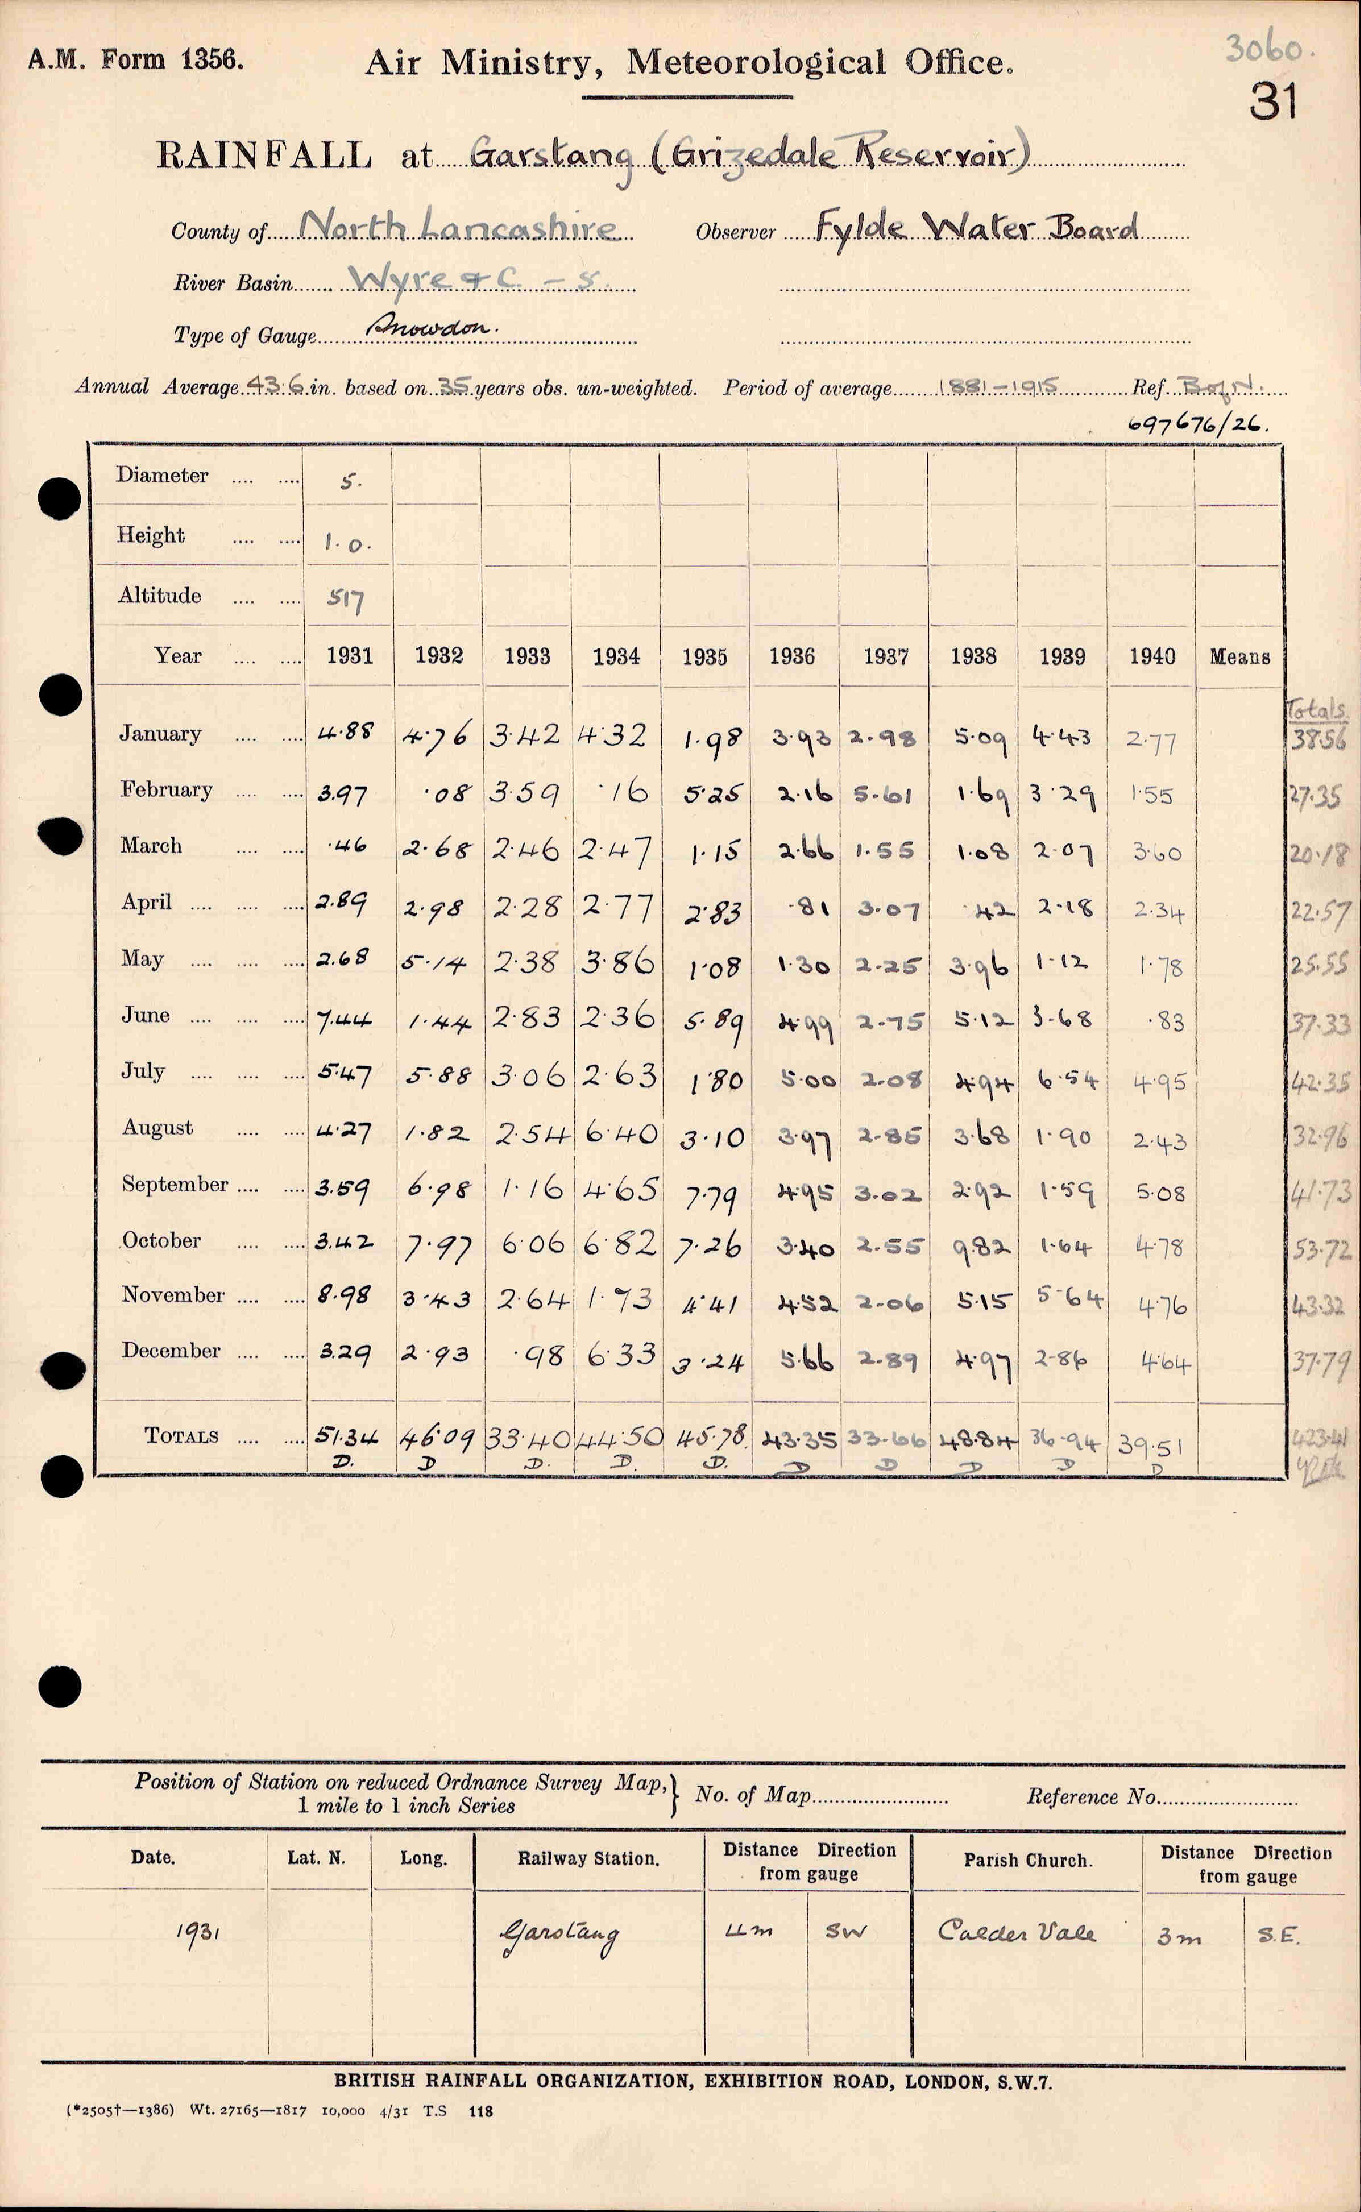 3060.
A.M. Form 1356. Air Ministry, Meteorological Office.
31
RAINFALL at Garstang (Grizedale Reservoir)
County of North Lancashire Observer Fylde Water Board
River Basin Wyre & C. - S.
Type of Gauge Snowdon.
Annual Average 43.6 in. based on 35 years obs. un-weighted. Period of average 1881-1915 Ref. B of N.
697676/26.
Diameter 5.
Height 1.0.
Altitude 517
Year 1931 1932 1933 1934 1935 1936 1937 1938 1939 1940 Means
Totals
January 4.88 4.76 3.42 4.32 1.98 3.93 2.98 5.09 4.43 2.77 38.56
February 3.97 .08 3.59 .16 5.25 2.16 5.61 1.69 3.29 1.55 27.35
March .46 2.68 2.46 2.47 1.15 2.66 1.55 1.08 2.07 3.60 20.18
April 2.89 2.98 2.28 2.77 2.83 .81 3.07 .42 2.18 2.34 22.57
May 2.68 5.14 2.38 3.86 1.08 1.30 2.25 3.96 1.12 1.78 25.55
June 7.44 1.44 2.83 2.36 5.89 4.99 2.75 5.12 3.68 .83 37.33
July 5.47 5.88 3.06 2.63 1.80 5.00 2.08 4.94 6.54 4.95 42.35
August 4.27 1.82 2.54 6.40 3.10 3.97 2.85 3.68 1.90 2.43 32.96
September 3.59 6.98 1.16 4.65 7.79 4.95 3.02 2.92 1.59 5.08 41.73
October 3.42 7.97 6.06 6.82 7.26 3.40 2.55 9.82 1.64 4.78 53.72
November 8.98 3.43 2.64 1.73 4.41 4.52 2.06 5.15 5.64 4.76 43.32
December 3.29 2.93 .98 6.33 3.24 5.66 2.89 4.97 2.86 4.64 37.79
TOTALS 51.34 46.09 33.40 44.50 45.78 43.35 33.66 48.84 36.94 39.51 423.41
D. D D. D. D. D D D D D
Position of Station on reduced Ordnance Survey Map, } No. of Map Reference No.
1 mile to 1 inch Series
Date. Lat. N. Long. Railway Station. Distance Direction from gauge Parish Church. Distance Direction from gauge
1931 Garstang 4m SW Calder Vale 3m S.E.
BRITISH RAINFALL ORGANIZATION, EXHIBITION ROAD, LONDON, S.W.7.
(*2505†—1386) Wt. 27165—1817 10,000 4/31 T.S 118